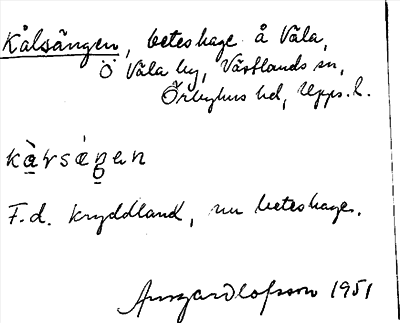 Kålsängen, beteshage å Våla,
Ö Våla by, Västlands sn,
Örbyhus hd, Upps. l.
F.d. kryddland, nu beteshage.
Ansgar Olofsson 1951